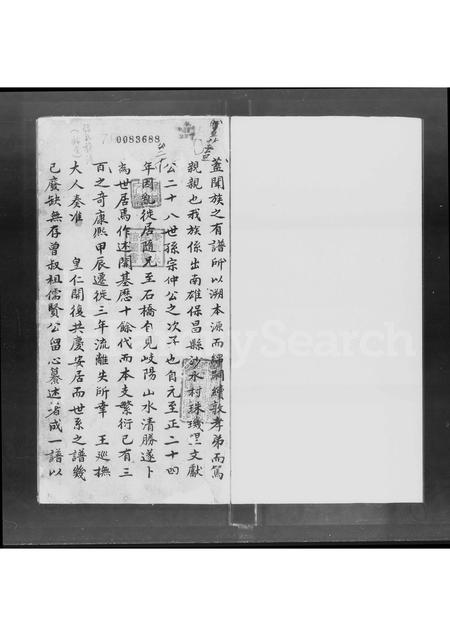 0083688
蓋聞族之有譜所以溯本源而綿嗣續敦孝弟而篤
親親也我族係出南雄保昌縣沙水村珠璣里文獻
公二十八世孫宗仲公之次子也自元至正二十四
年因亂徙居隨兄至石橋白見岐陽山水清勝遂卜
為世居焉作述開基歷十餘代而本支繁衍已有三
百之奇康熙甲辰遷徙三年流離失所幸 王巡撫
大人奏准 皇仁開復共慶安居而世系之譜幾
已廢缺無存曾叔祖儒賢公留心纂述成一譜以
FamilySearch